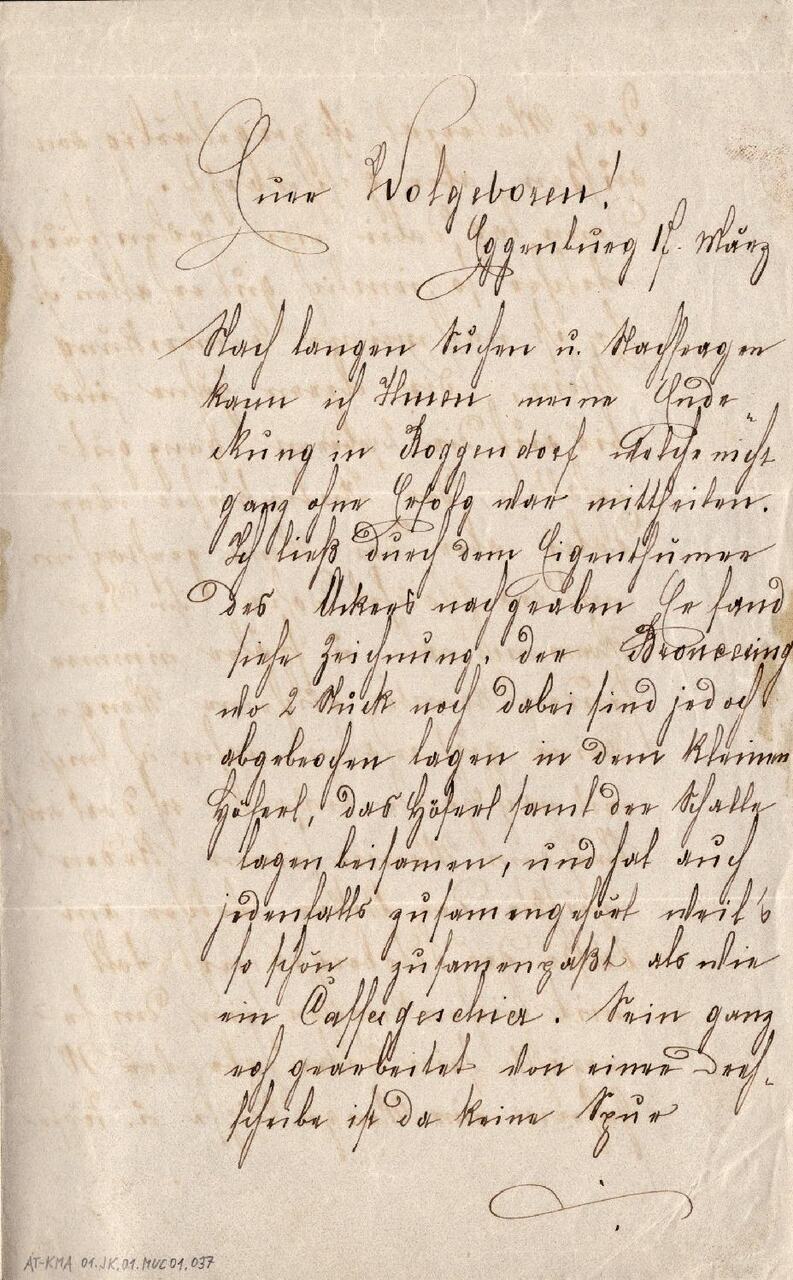 Euer Wolgeboren!
Eggenburg 17. März
Nach langen Suchen u. Nachfragen
kann ich Ihnen meine Ende
ckung in Roggendorf welche nicht
ganz ohne Erfolg war mittheilen.
Ich ließ durch dem Eigenthümer
des Ackers nachgraben Er fand
siehe Zeichnung. der Broncering
wo 2 Stück noch dabei sind jedoch
abgebrochen lagen in dem kleinen
Höferl, das Höferl samt der Schalle
lagen beisamen, und hat auch
jedenfalls zusamengehört weil's
so schön zusamenpaßt als wie
ein Caffeegeschier. Sein ganz
roh gearbeitet von einer Dreh-
scheibe ist da keine Spur
AT-KMA 01.JK.01.MUE01.037